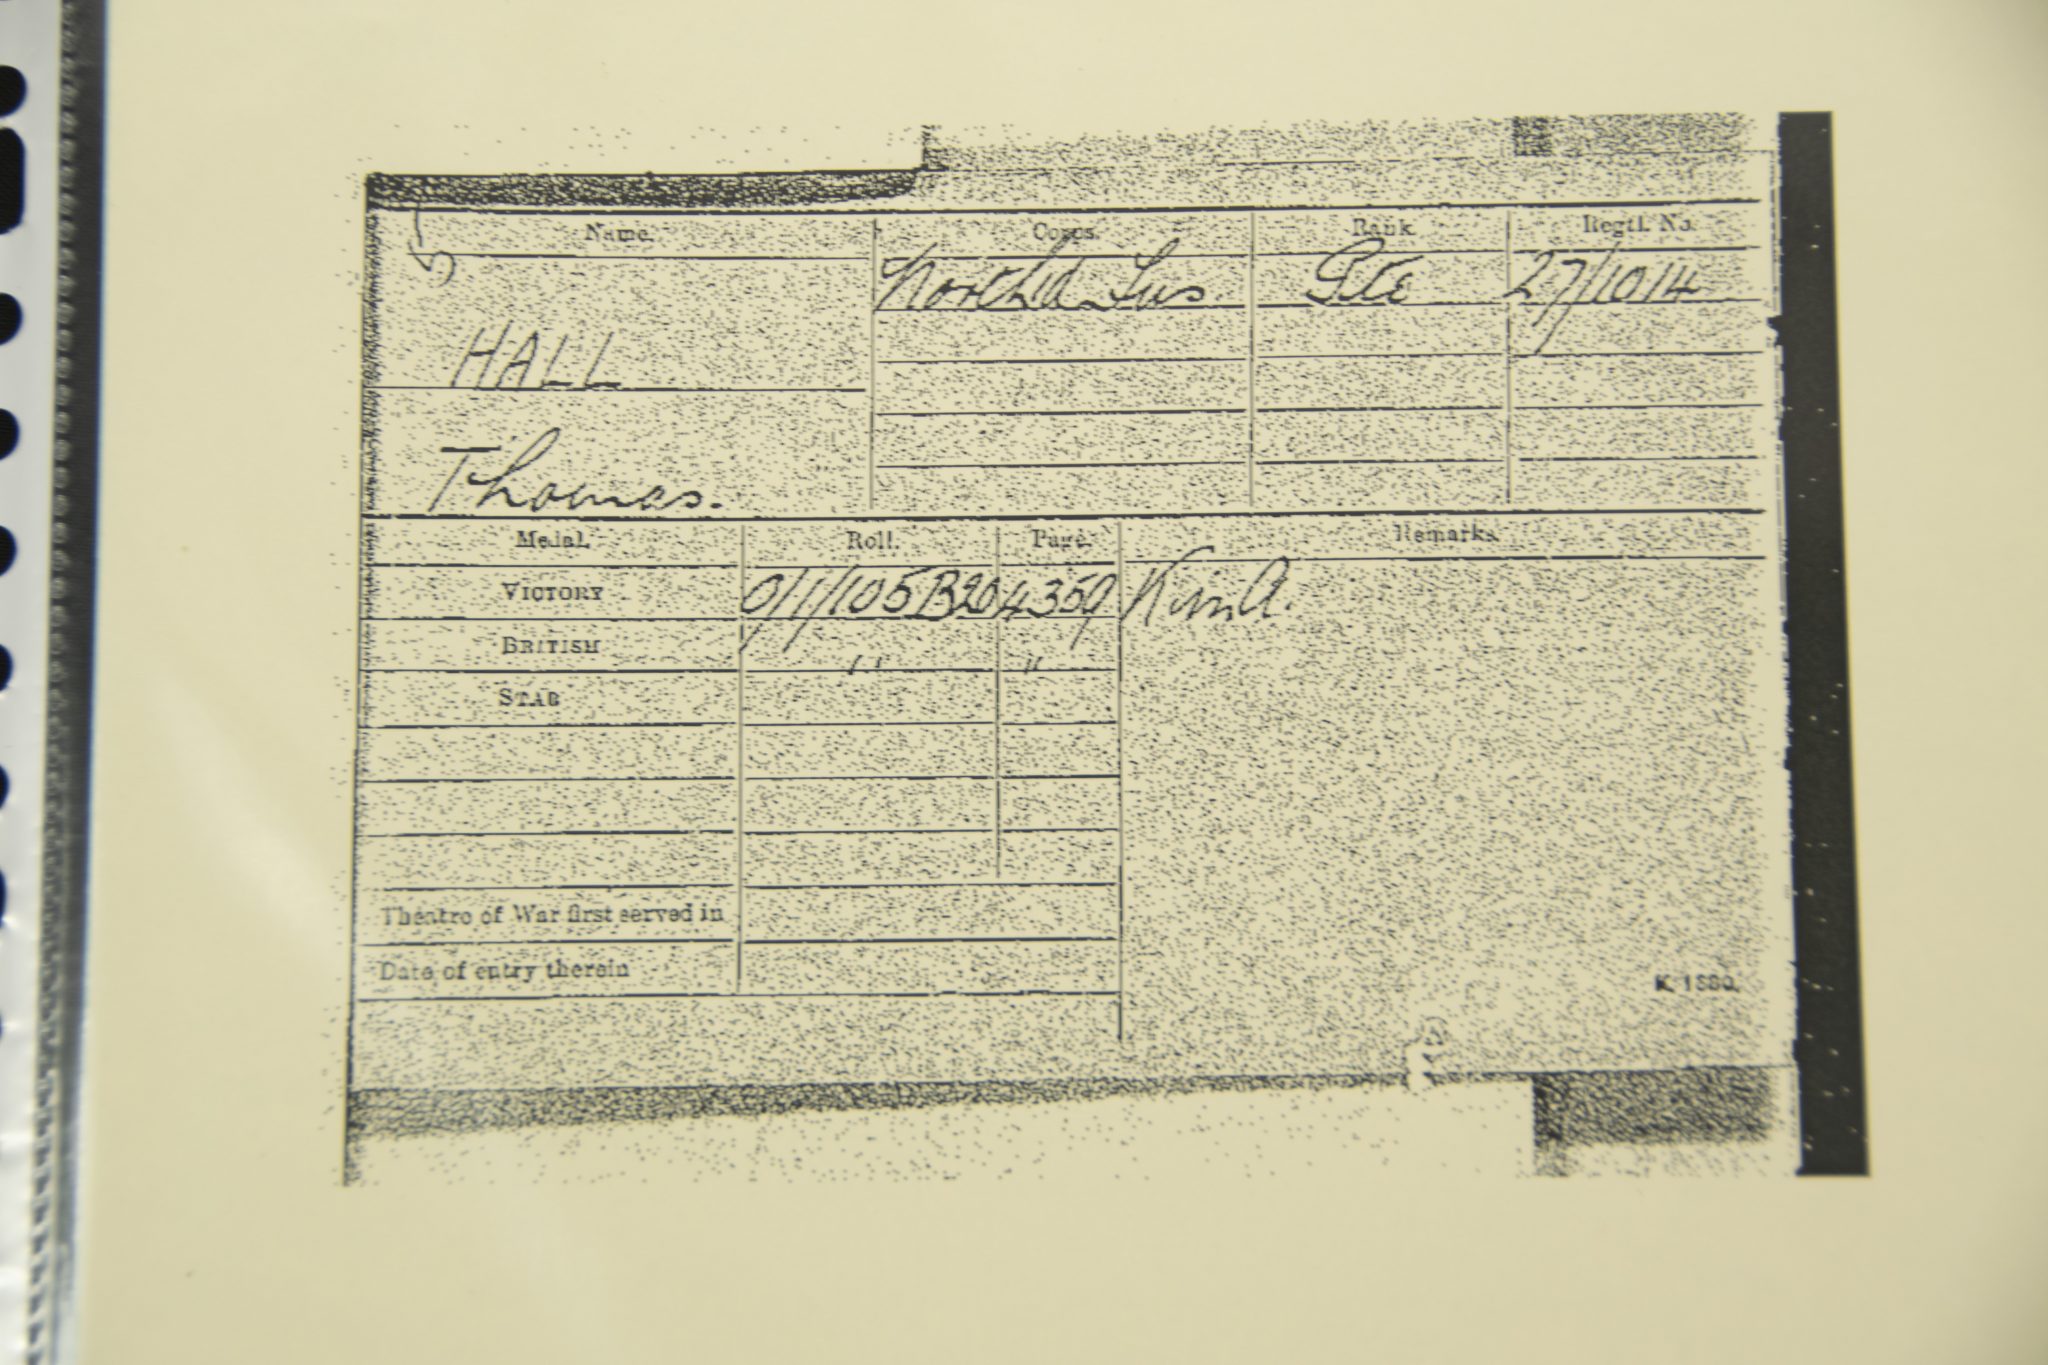 Name. Corps. Rank. Regtl. No.
Northld Fus. Pte 27/1014
HALL
Thomas.
Medal. Roll. Page. Remarks.
VICTORY 0/1/105B20 4359 K in A.
BRITISH " "
STAR
Theatre of War first served in
Date of entry therein
K. 1380.